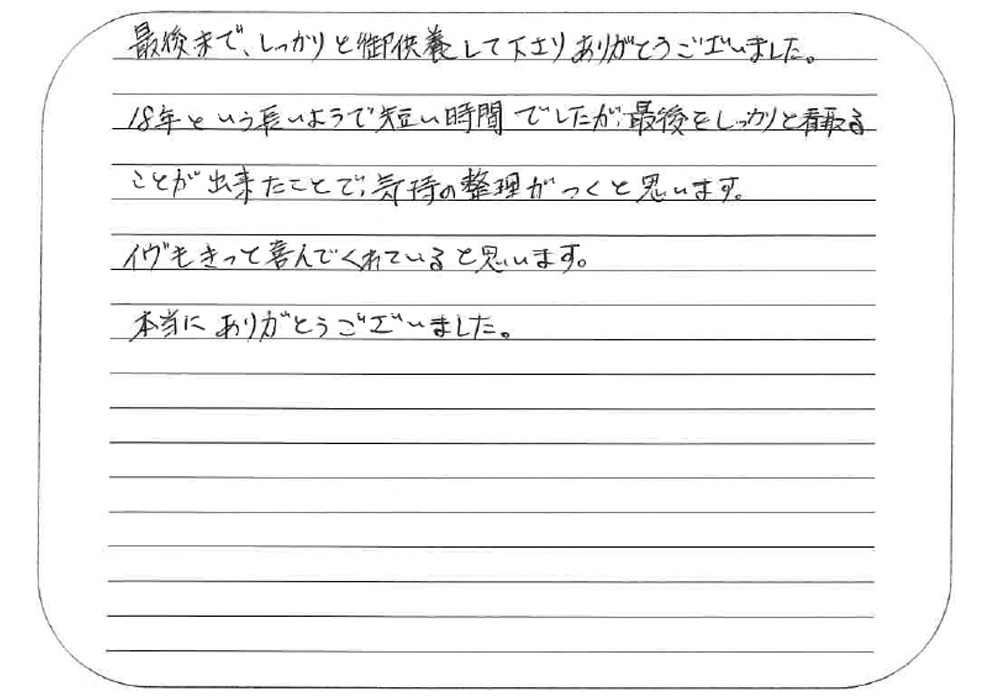 最後まで、しっかりと御供養して下さりありがとうございました。
18年という長いようで短い時間でしたが、最後をしっかりと看取る
ことが出来たことで、気持の整理がつくと思います。
イヴもきっと喜んでくれていると思います。
本当にありがとうございました。